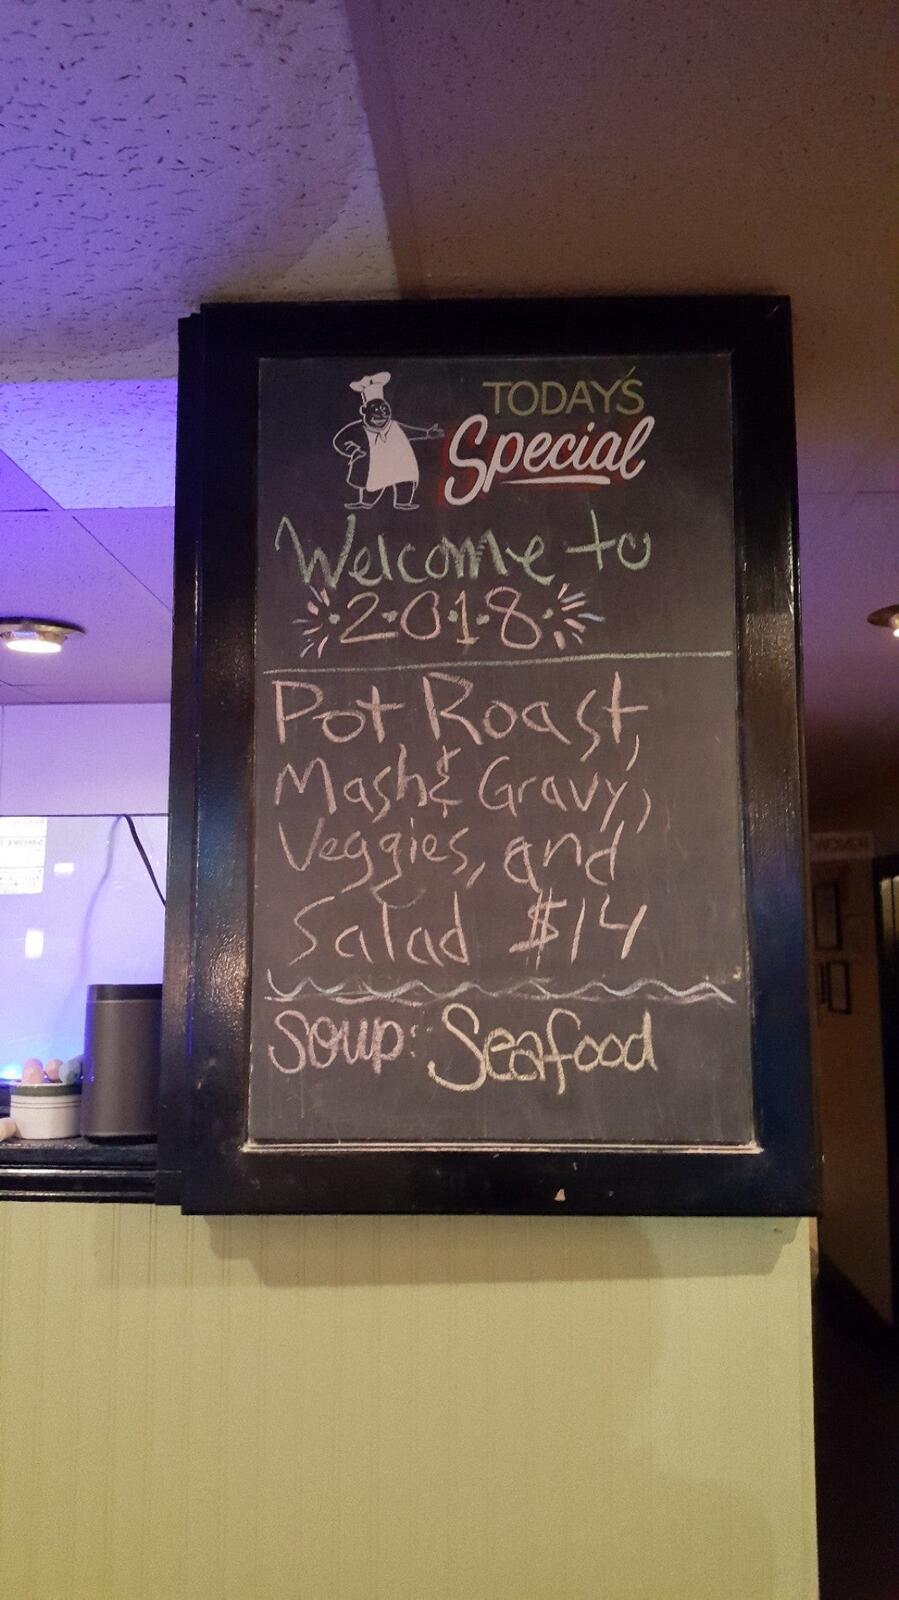 TODAY'S
Special
Welcome to
2·0·1·8
Pot Roast,
Mash & Gravy,
Veggies, and
Salad $14
Soup: Seafood
WOMEN